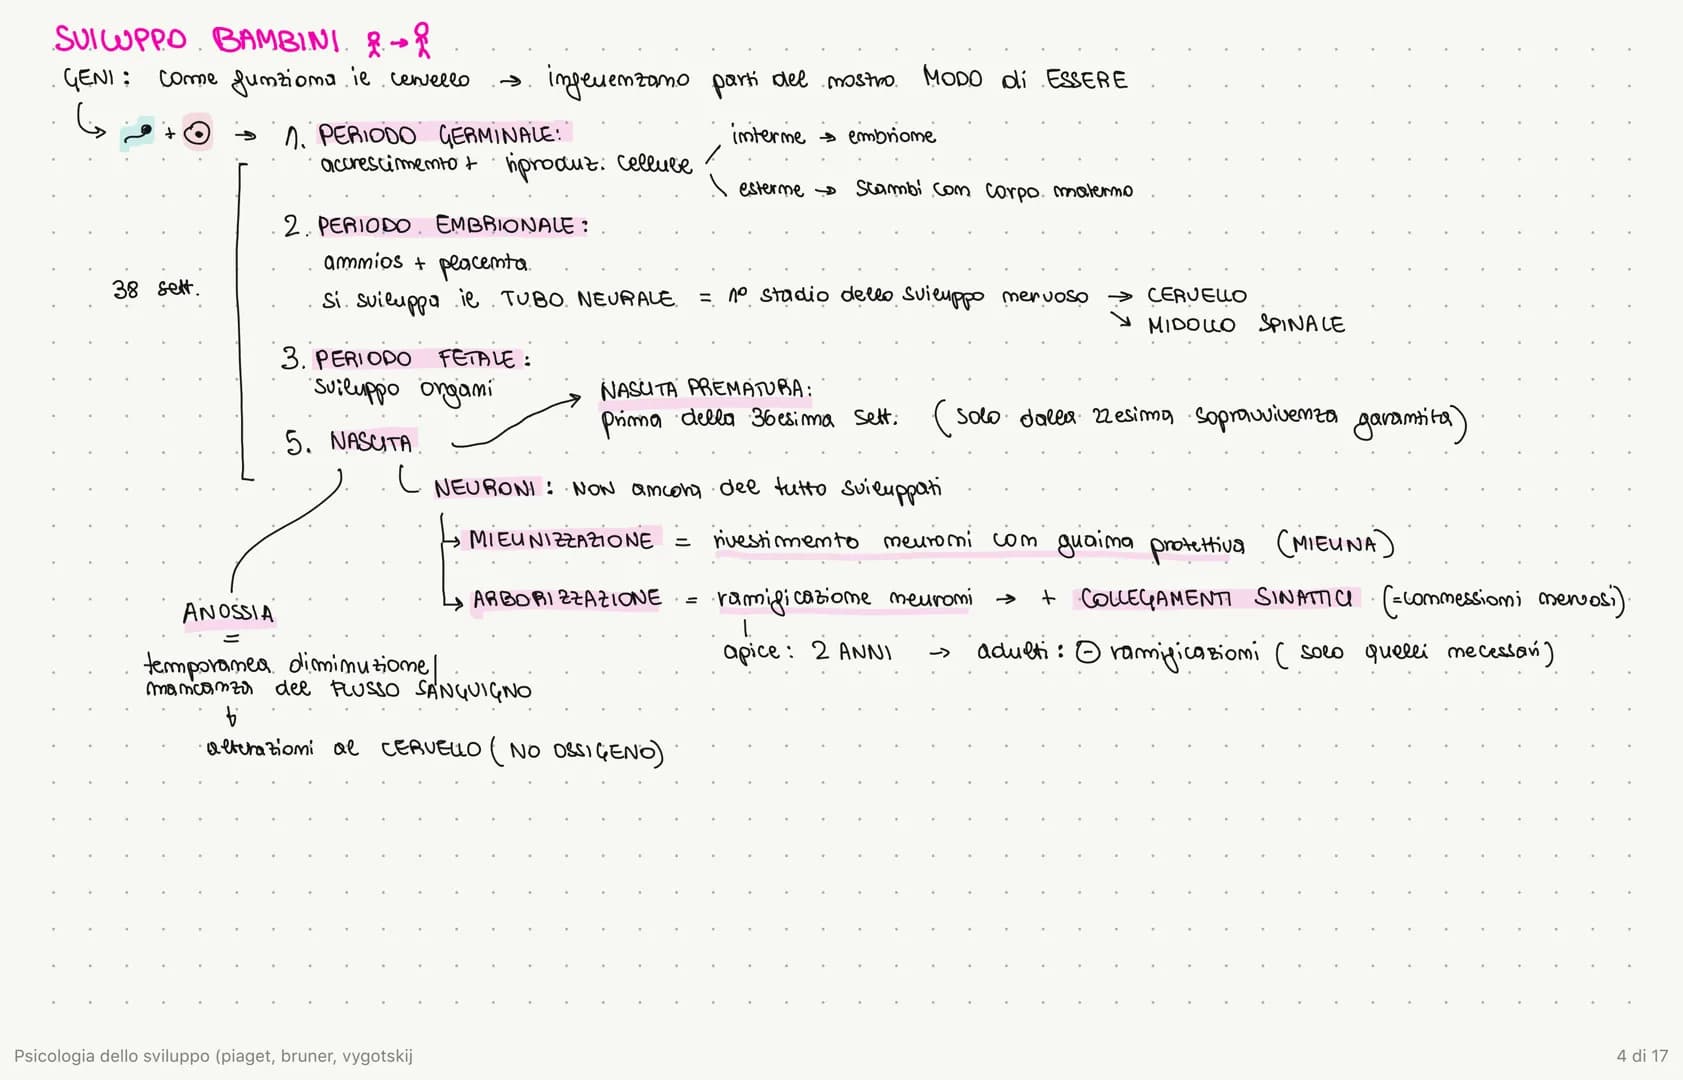 SVILUPPO BAMBINI
GENI: come funziona il cervello → influenzano parti del nostro MODO di ESSERE
+ → 1. PERIODO GERMINALE:
accrescimento + riproduz. cellule
interne → embrione
esterne → scambi con corpo materno
2. PERIODO EMBRIONALE:
amnios + placenta
38 sett.
si sviluppa il TUBO NEURALE = 1° stadio dello sviluppo nervoso → CERVELLO
↘ MIDOLLO SPINALE
3. PERIODO FETALE:
sviluppo organi
NASCITA PREMATURA:
prima della 36esima sett. (solo dalla 22esima sopravvivenza garantita)
5. NASCITA
NEURONI: NON ancora del tutto sviluppati
↳ MIELINIZZAZIONE = rivestimento neuroni con guaina protettiva (MIELINA)
↳ ARBORIZZAZIONE = ramificazione neuroni → + COLLEGAMENTI SINATTICI (=connessioni nervosi)
apice: 2 ANNI → adulti: ⊖ ramificazioni (solo quelli necessari)
ANOSSIA
=
temporanea diminuzione/
mancanza del FLUSSO SANGUIGNO
↓
alterazioni al CERVELLO (NO OSSIGENO)
Psicologia dello sviluppo (piaget, bruner, vygotskij
4 di 17